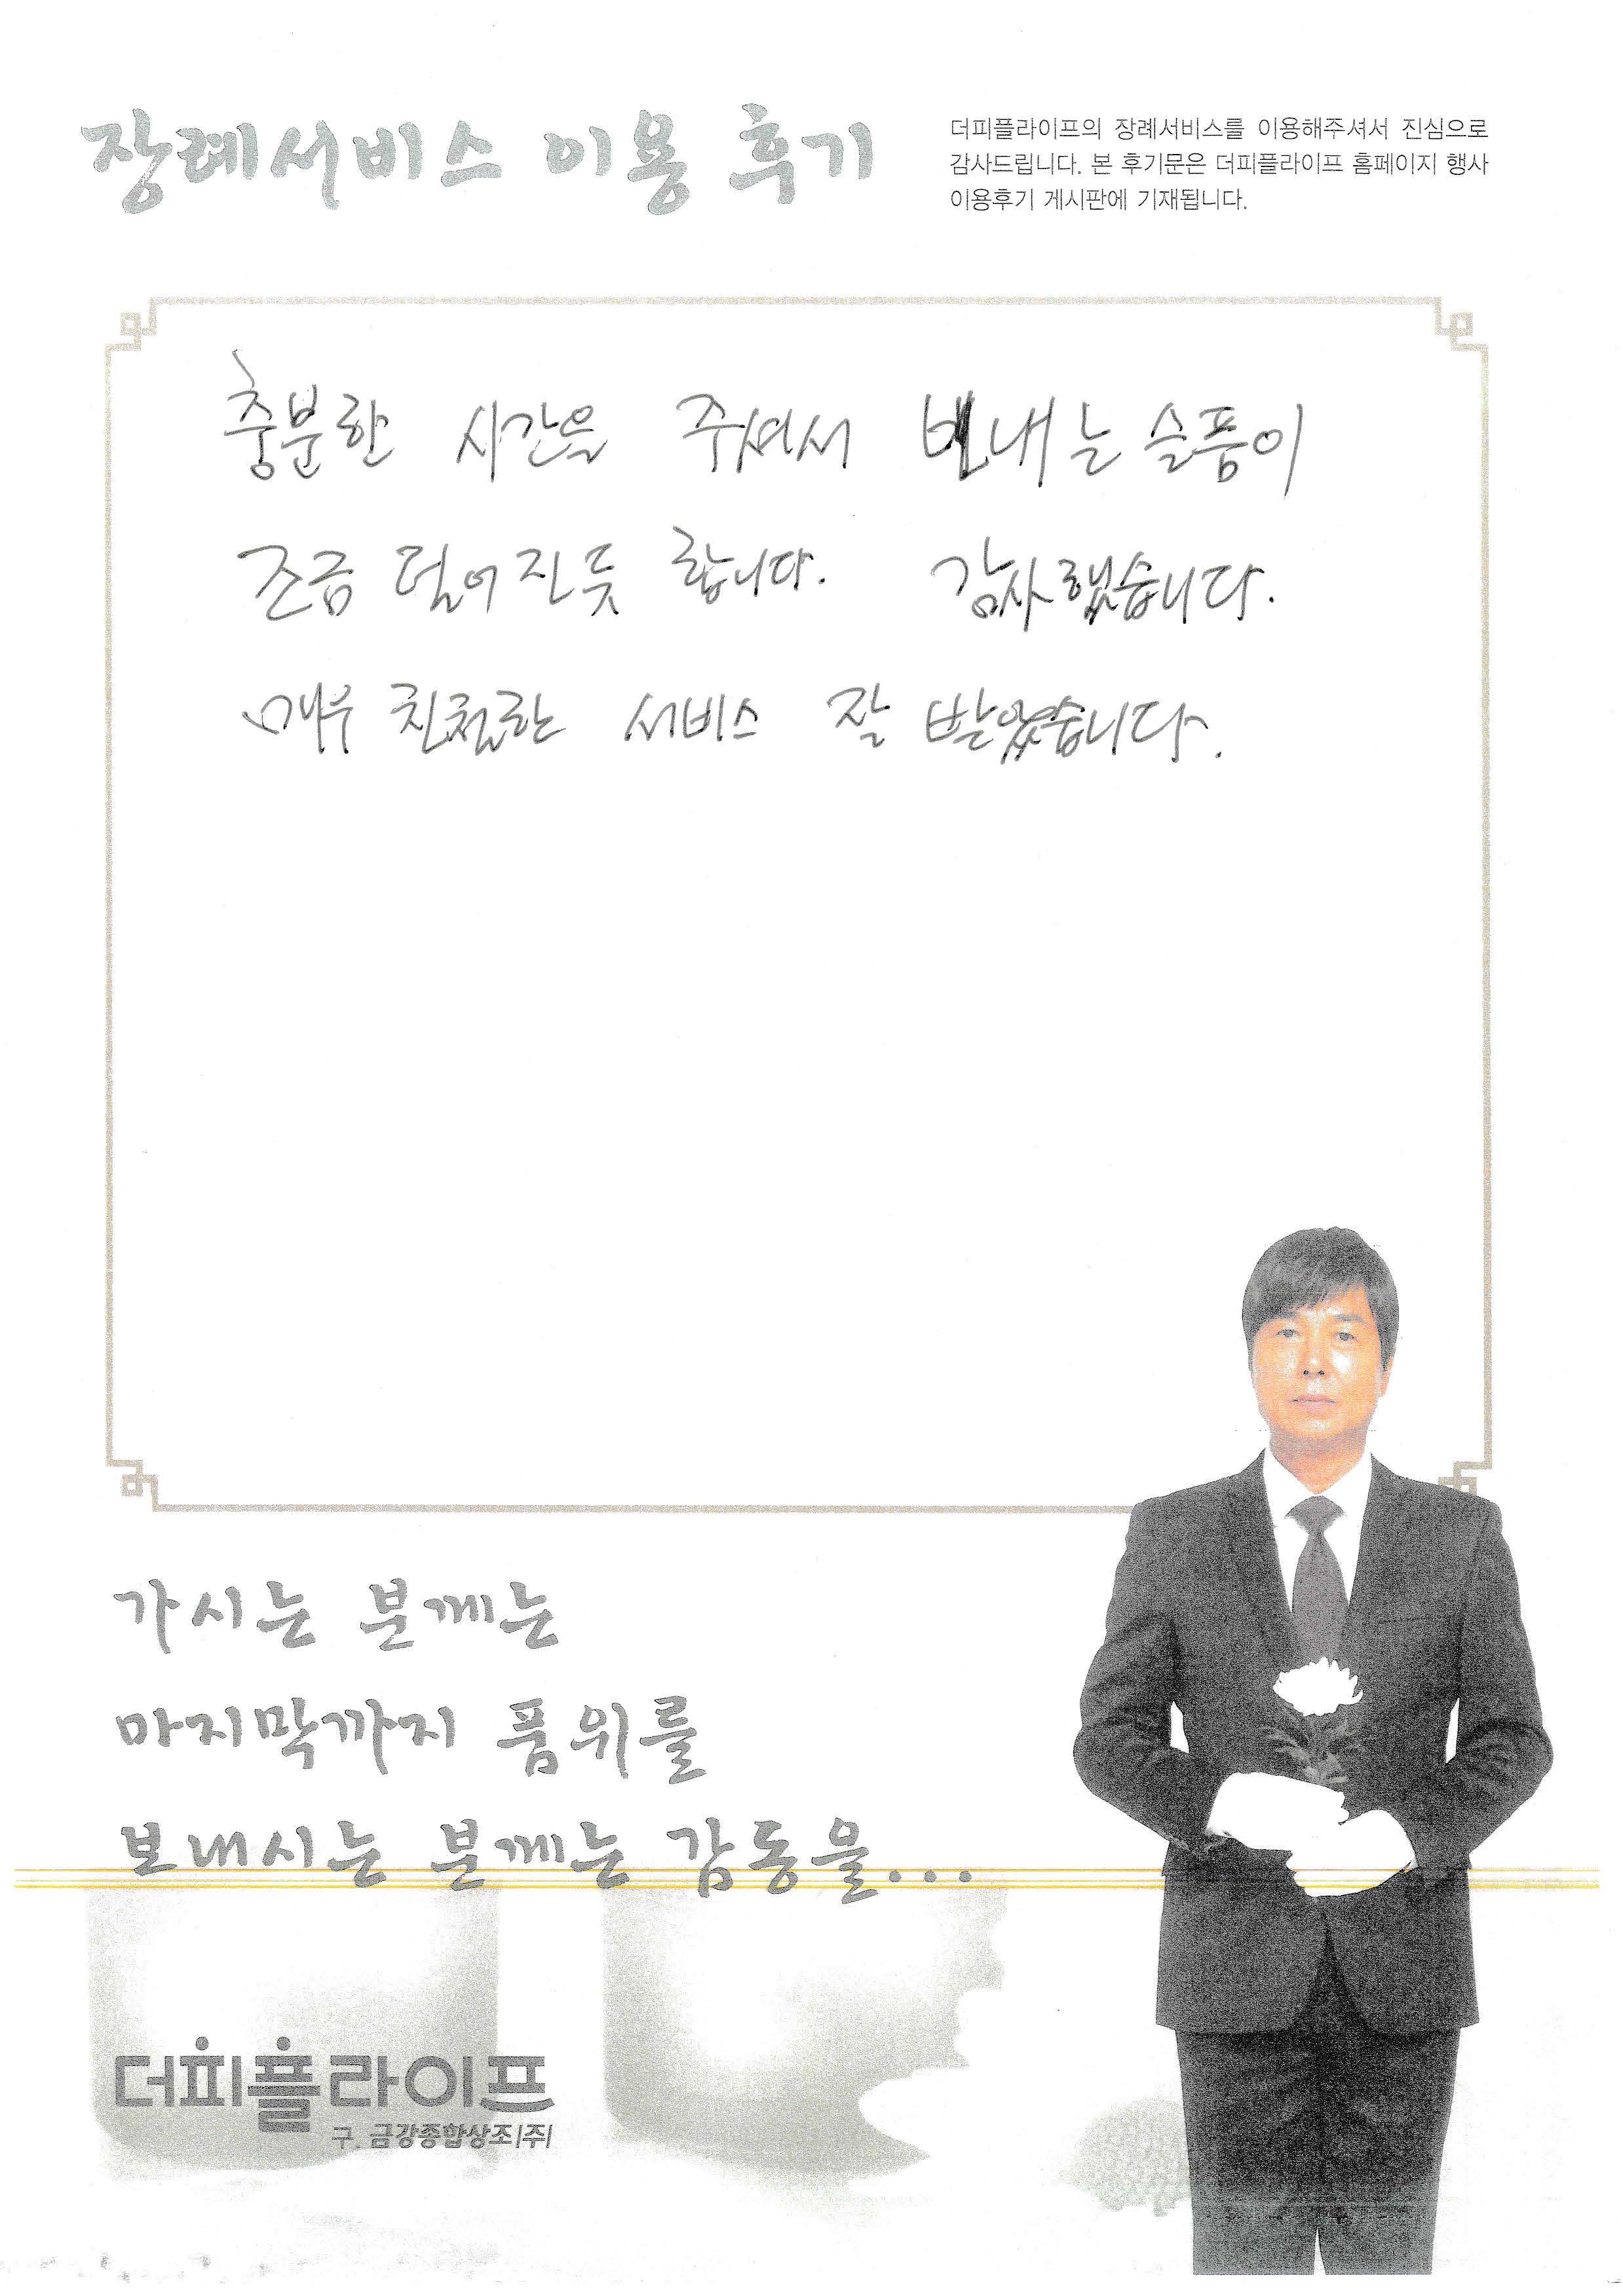 장례서비스 이용 후기
더피플라이프의 장례서비스를 이용해주셔서 진심으로
감사드립니다. 본 후기문은 더피플라이프 홈페이지 행사
이용후기 게시판에 기재됩니다.
충분한 시간을 주셔서 보내는 슬픔이
조금 덜어진듯 합니다. 감사했습니다.
매우 친절한 서비스 잘 받았습니다.
가시는 분께는
마지막까지 품위를
보내시는 분께는 감동을...
더피플라이프
구. 금강종합상조(주)